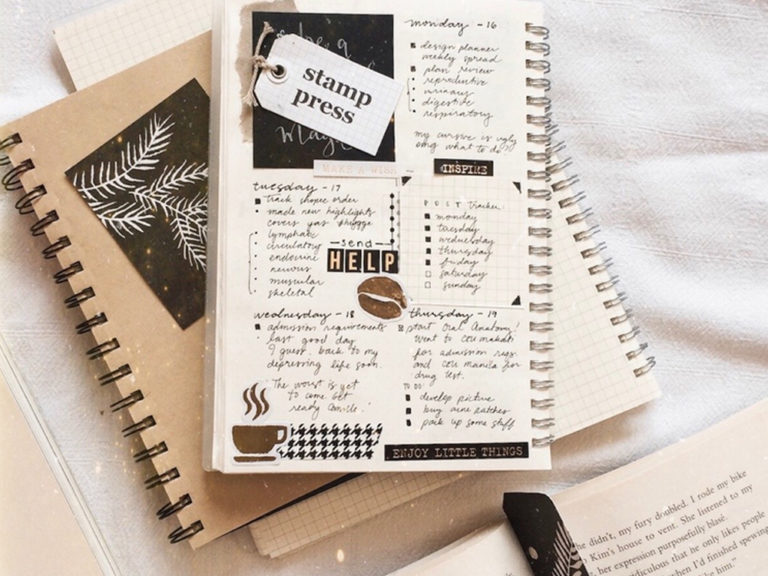 stamp
press
MAKE A WISH
monday - 16
design planner
weekly spread
plan review
reproductive
urinary
digestive
respiratory
my cursive is ugly
omg what to do
INSPIRE
tuesday - 17
track shopee order
made new highlights
covers
lymphatic
circulatory
endocrine
nervous
muscular
skeletal
send
HELP
POST Tracker
monday
tuesday
wednesday
thursday
friday
saturday
sunday
wednesday - 18
admission requirements
last good day
I guess. back to my
depressing life soon.
"The worst is yet
to come get
ready
thursday - 19
start Oral Anatomy!
went to CEU makati
for admission reqs
and CEU manila for
drug test.
TO DO:
develop picture
buy acne patches
pack up some stuff
ENJOY LITTLE THINGS
he didn't, my fury doubled. I rode my bike
Kim's house to vent. She listened to my
, her expression purposefully blasé.
ridiculous that he only likes people
when I'd finished spewing
him."